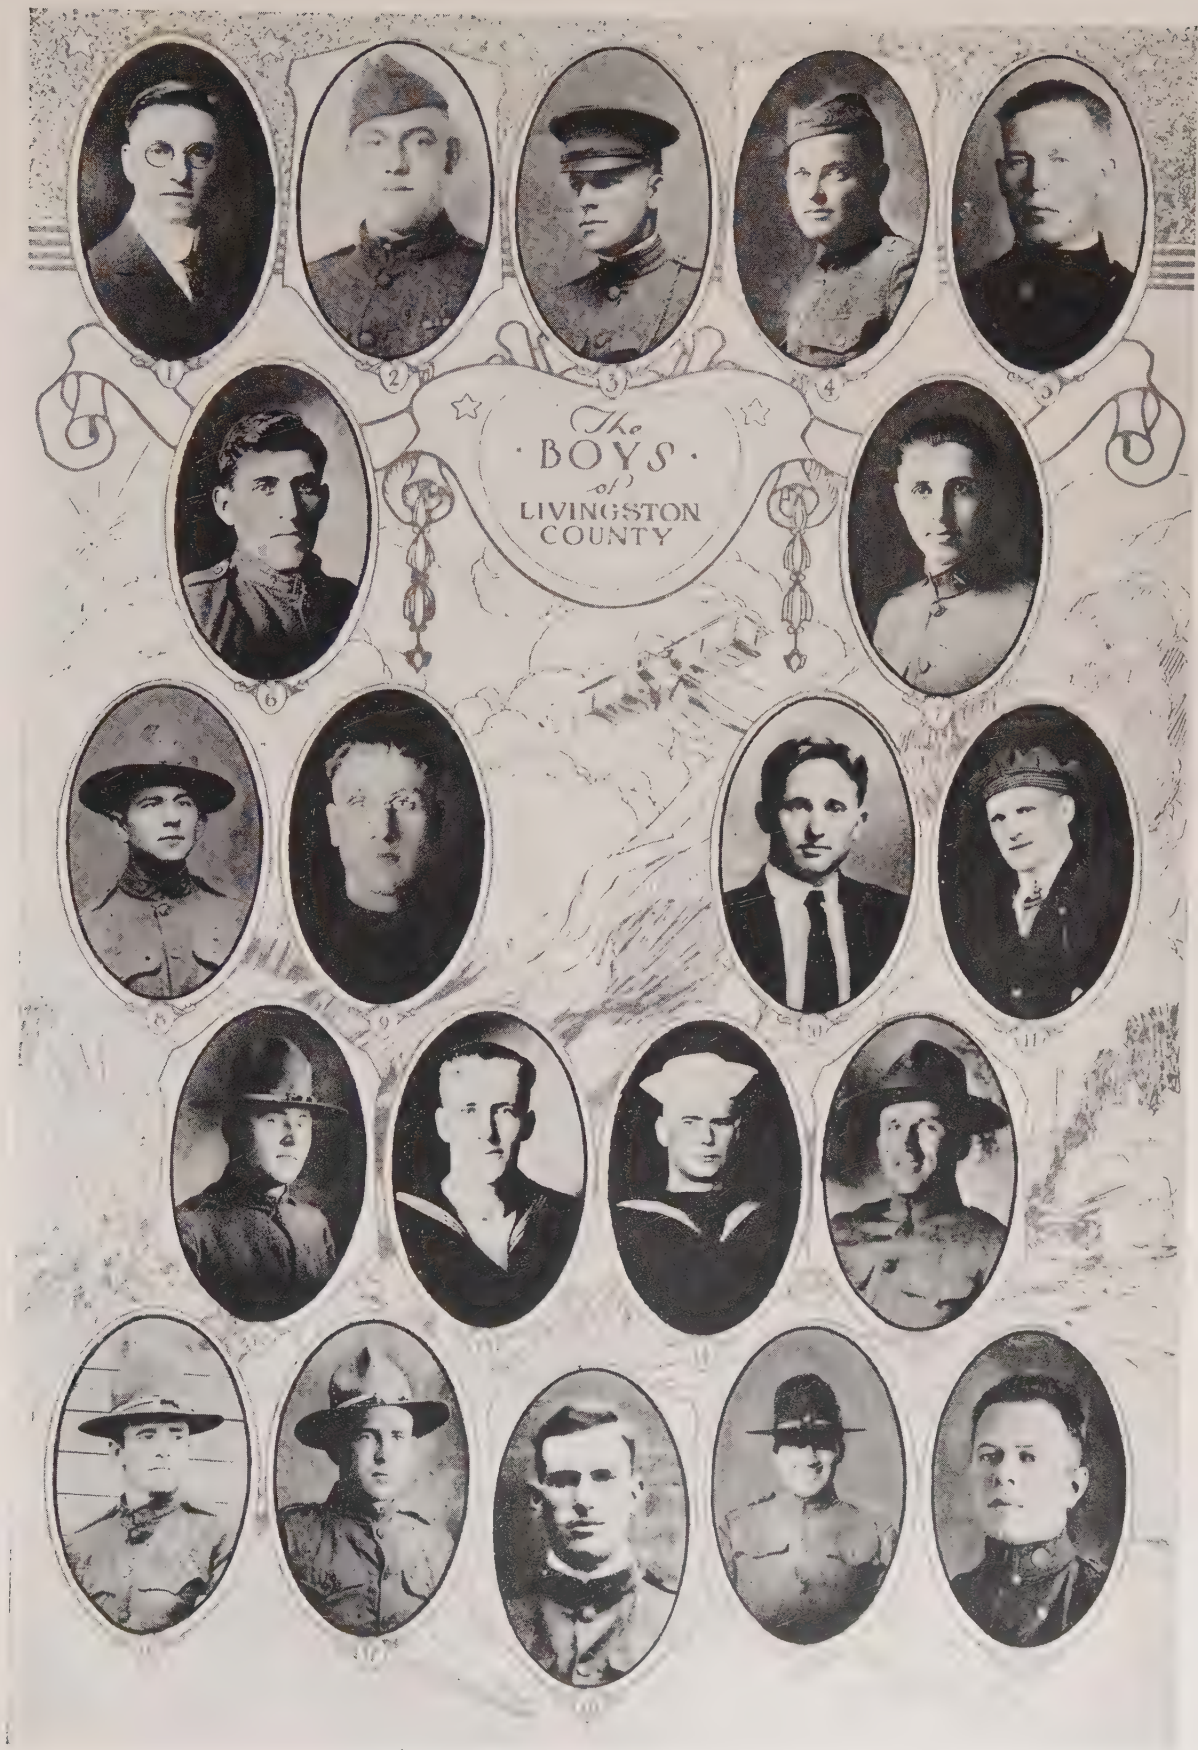 1
2
3
4
5
The
· BOYS ·
of
LIVINGSTON
COUNTY
6
7
8
9
10
11